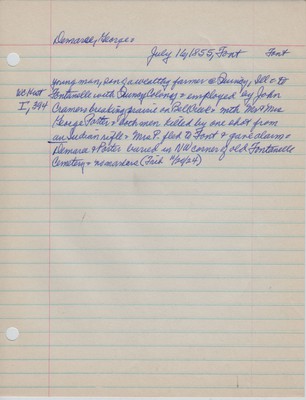 Demaree, George
July 16, 1855, Font Font
young man, son g a wealthy farmer @ Quincy, Ill & to
WC Hist Fontanelle with Quincy Colony & employed by John
I, 394 Cramer breaking prairie on Bell Creek with Mr & Mrs
George Porter & both men killed by one shot from
an Indian's rifle & Mrs P. fled to Font & gave alarm &
Demaree & Porter buried in NW corner g old Fontanelle
Cemetery & no markers (Trib 4/24/24)